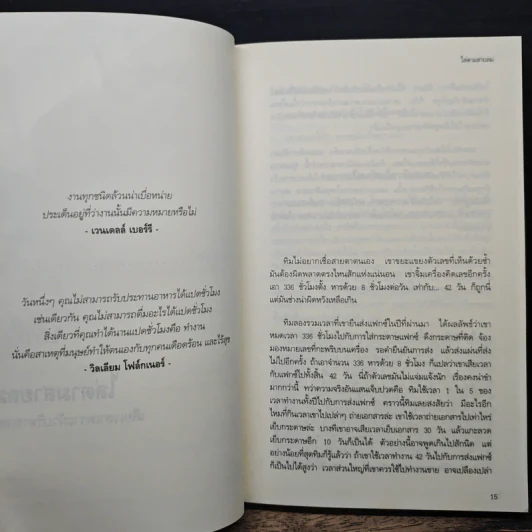 งานทุกชนิดล้วนน่าเบื่อหน่าย
ประเด็นอยู่ที่ว่างานนั้นมีความหมายหรือไม่
- เวนเดลล์ เบอร์รี -
วันหนึ่งๆ คุณไม่สามารถรับประทานอาหารได้แปดชั่วโมง
เช่นเดียวกัน คุณไม่สามารถดื่มอะไรได้แปดชั่วโมง
สิ่งเดียวที่คุณทำได้นานแปดชั่วโมงคือ ทำงาน
นั่นคือสาเหตุที่มนุษย์ทำให้ตนเองกับทุกคนเดือดร้อน และไร้สุข
- วิลเลียม โฟล์กเนอร์ -
ไล่ตามสายลม
ทิมไม่อยากเชื่อสายตาตนเอง เขาขยะแขยงตัวเลขที่เห็นด้วยซ้ำ
มันต้องผิดพลาดตรงไหนสักแห่งแน่นอน เขาจิ้มเครื่องคิดเลขอีกครั้ง
เอา 336 ชั่วโมงตั้ง หารด้วย 8 ชั่วโมงต่อวัน เท่ากับ... 42 วัน ก็ถูกนี่
แต่มันช่างน่าผิดหวังเหลือเกิน
ทิมลองรวมเวลาที่เขายืนส่งแฟกซ์ในปีที่ผ่านมา ได้ผลลัพธ์ว่าเขา
หมดเวลา 336 ชั่วโมงไปกับการใส่กระดาษแฟกซ์ ดึงกระดาษที่ติด จ้อง
มองหมายเลขที่กะพริบบนเครื่อง รอคำยืนยันการส่ง แล้วส่งแผ่นที่ส่ง
ไม่ไปอีกครั้ง ถ้าเอาจำนวน 336 หารด้วย 8 ชั่วโมง ก็แปลว่าเขาเสียเวลา
กับแฟกซ์ไปทั้งสิ้น 42 วัน นี่ถ้าตัวเลขมันไม่แจ่มแจ้งนัก เรื่องคงน่าขำ
มากกว่านี้ ทว่าความจริงอันแสนเจ็บปวดคือ ทิมใช้เวลา 1 ใน 5 ของ
เวลาทำงานทั้งปีไปกับการส่งแฟกซ์ คราวนี้ทิมเลยสงสัยว่า มีอะไรอีก
ไหมที่กินเวลาเขาไปเปล่าๆ ถ่ายเอกสารล่ะ เขาใช้เวลาถ่ายเอกสารไปเท่าไหร่
เย็บกระดาษล่ะ บางทีเขาอาจเสียเวลาเย็บเอกสาร 30 วัน แล้วแกะลวด
เย็บกระดาษอีก 10 วันก็เป็นได้ ตัวอย่างนี้อาจพูดเกินไปสักนิด แต่
อย่างน้อยที่สุดทิมก็รู้แล้วว่า ถ้าเขาใช้เวลาทำงาน 42 วันไปกับการส่งแฟกซ์
ก็เป็นไปได้สูงว่า เวลาส่วนใหญ่ที่เขาควรใช้ไปทำงานขาย อาจเปลืองเปล่า
15